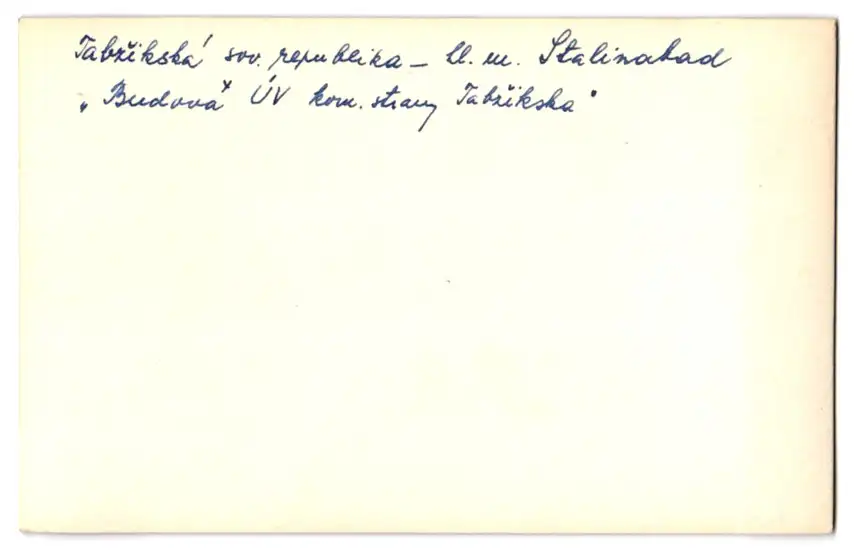 Tabžikská sov. republika - hl. m. Stalinabad
„Budova ÚV kom. strany Tabžikska"